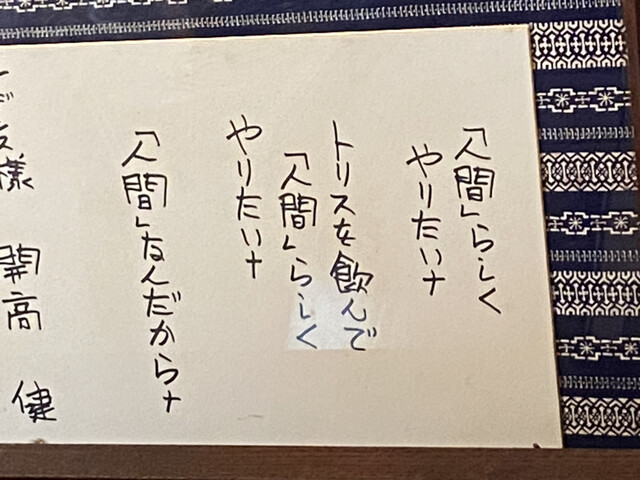 「人間」らしく
やりたいナ
トリスを飲んで
「人間」らしく
やりたいナ
「人間」なんだからナ
様 開高 健